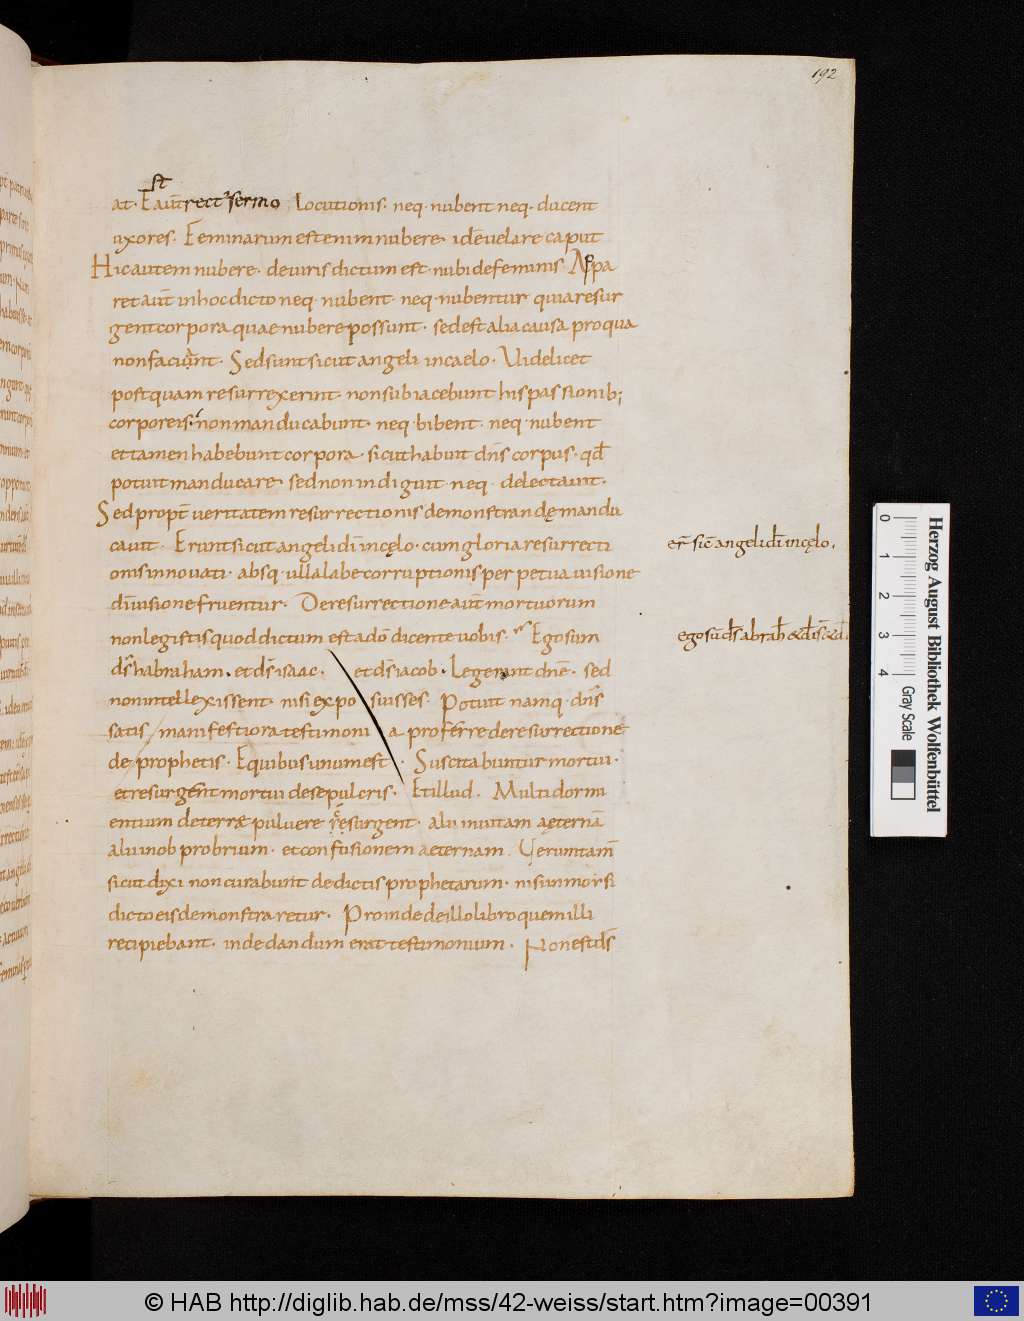 192
st
at· E aut rect' sermo Locutionis· neq· nubent neq· ducent
uxores· Feminarum est enim nubere· id ē velare caput
Hic autem nubere· de viris dictum est· nubi de feminis· Appa
ret aut in hoc dicto neq· nubent· neq· nubentur quia resur
gent corpora quae nubere possunt· sed est alia causa pro qua
non faciunt· Sed sunt sicut angeli in caelo· Videlicet
postquam resurrexerint· non subiacebunt his passionib;
corporeis· non manducabunt· neq· bibent· neq· nubent
et tamen habebunt corpora· sicut habuit dn̄s corpus· qd̄
potuit manducare· sed non indiguit neq· delectavit·
Sed propt̄ veritatem resurrectionis demonstrandę mandu
cavit· Erunt sicut angeli dī in cęlo· cum gloria resurrecti
onis innovati· absq· ulla labe corruptionis perpetua visione
divisione fruentur· De resurrectione aut̄ mortuorum
non legistis quod dictum est a dō dicente vobis· Ego sum
ds̄ habraham· et ds̄ isaac· et ds̄ iacob· Legerant dnē· sed
non intellexissent· nisi expo suisses· Potuit namq· dn̄s
satis manifestiora testimoni a proferre de resurrectione
de prophetis· E quibus unum est· Suscitabuntur mortui·
et resurgent mortui de sepulcris· Et illud· Multi dormi
entium de terrae pulvere resurgent· alii in vitam aeternā
alii in obprobrium· et confusionem aeternam· Verumtam̄
sicut dixi non curabunt de dictis prophetarum· nisi in morsi
dicto eis demonstraretur· Proinde de illo libro quem illi
recipiebant· inde dandum erat testimonium· Non est ds̄
er̄ sic̄ angeli dī in cęlo·
ego sū ds̄ abrah̄ & ds̄
0 1 2 3 4
Herzog August Bibliothek Wolfenbüttel
Gray Scale
© HAB http://diglib.hab.de/mss/42-weiss/start.htm?image=00391